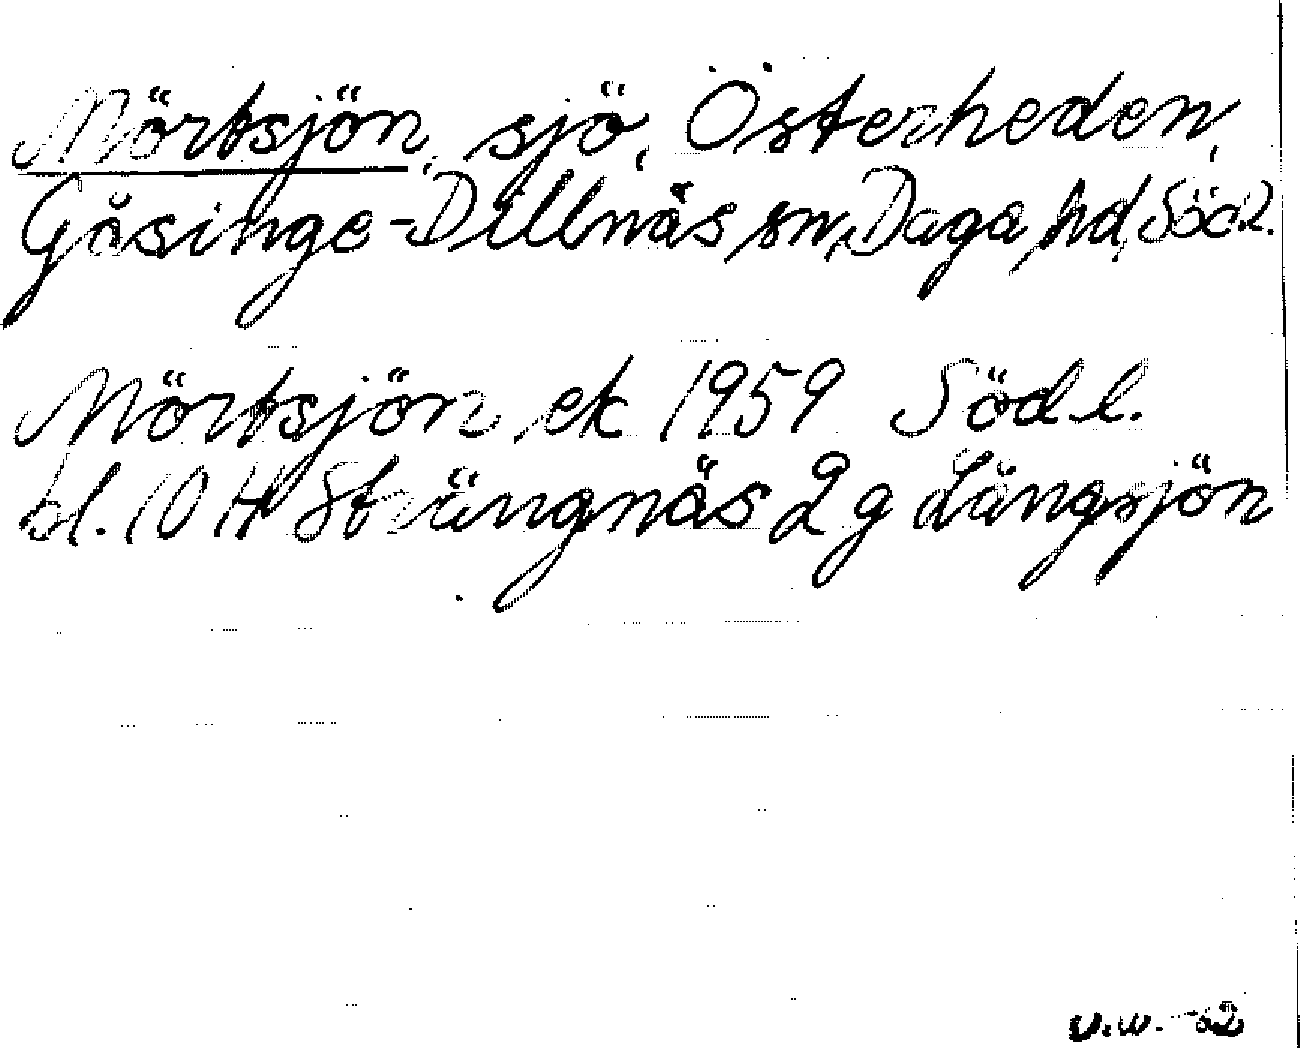 Mörtsjön, sjö, Österheden,
Gåsinge-Dillnäs sn, Daga hd, Södl.
Mörtsjön ek 1959 Södl.
bl. 10 H Strängnäs 2 g Långsjön
U.W. -62